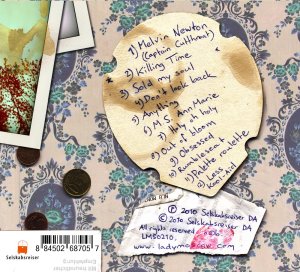 1) Melvin Newton
(Captain Cutthroat)
2) Killing Time
3) Sold my soul
4) Don't look back
5) Anything
6) M.S. Ann Marie
7) Holy oh holy
8) Out of bloom
9) Obsessed
10)
11) Palette Roulette
12) Less
℗ 2010 Selskabsreiser DA
© 2010 Selskabsreiser DA
All rights reserved
LMS0210
8 84502 68705 7
Selskabsreiser